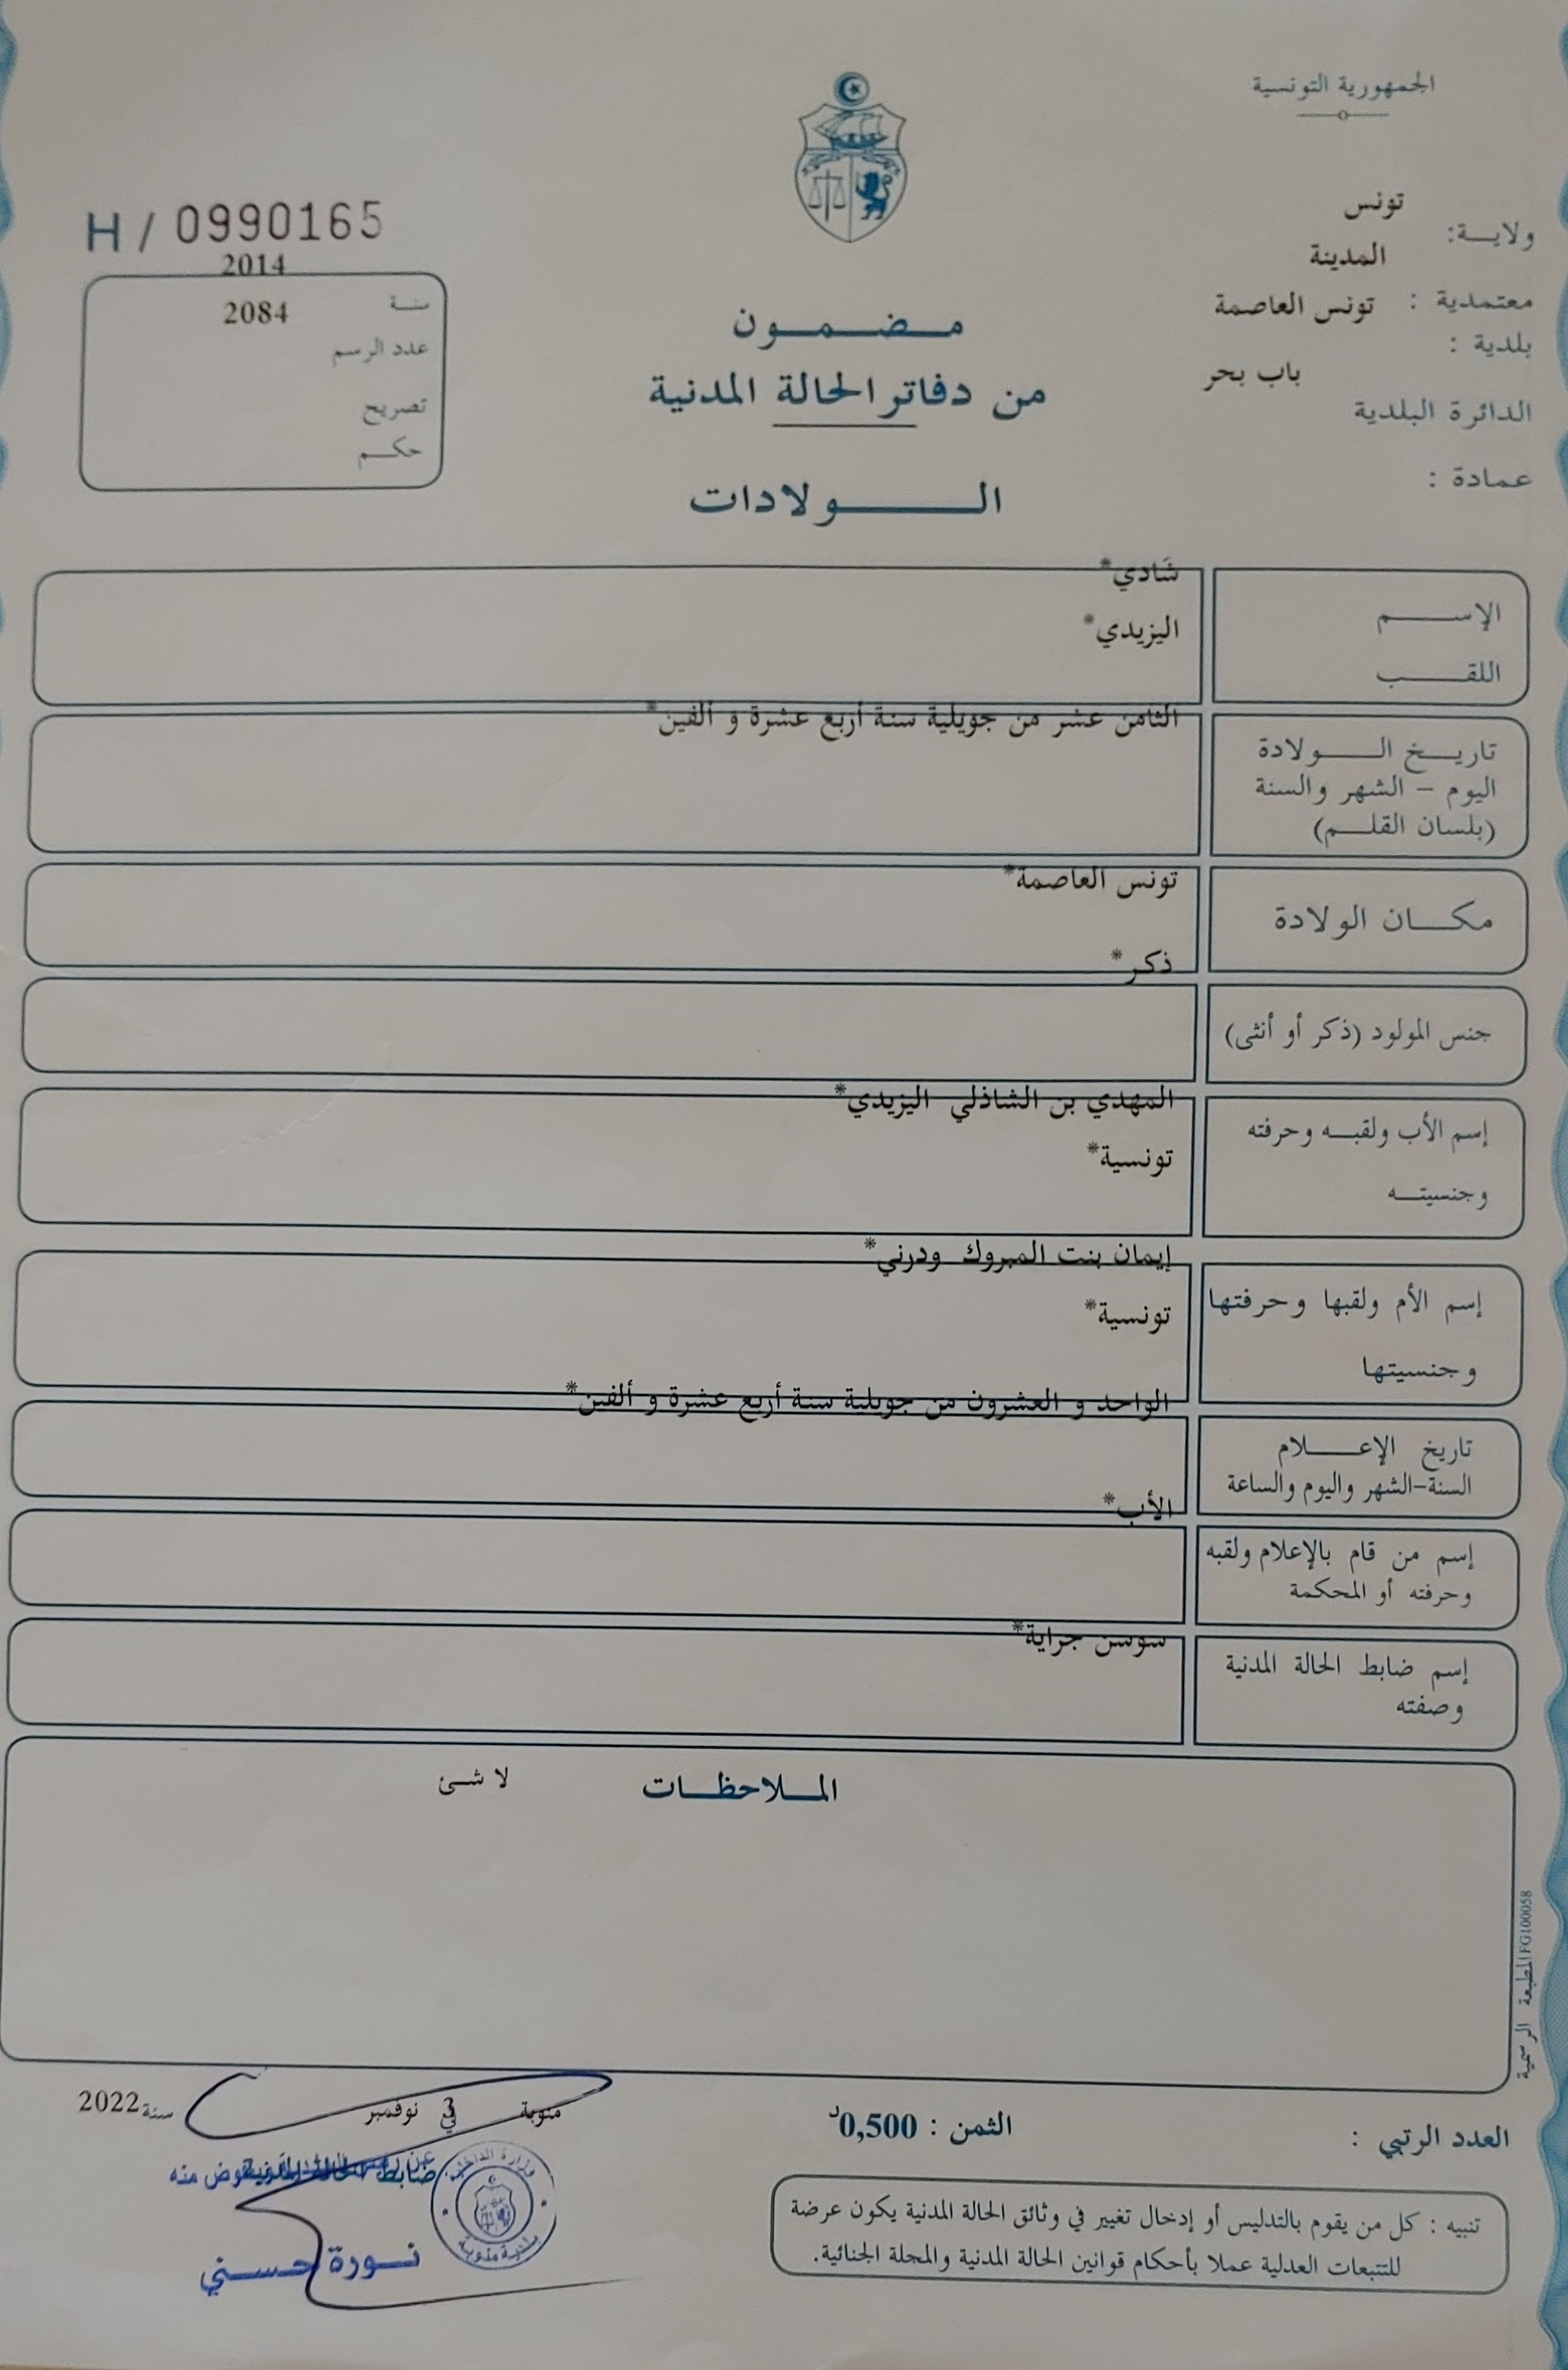 الجمهورية التونسية
ولايــة: تونس
المدينة
معتمدية : تونس العاصمة
بلدية :
باب بحر
الدائرة البلدية
عمادة :
H / 0990165
2014
سنــة
2084
عدد الرسم
تصريح
حكــم
مــضــمــون
من دفاتر الحالة المدنية
الـــــولادات
شادي*
الإســـــم
اليزيدي*
اللقــــب
الثامن عشر من جويلية سنة أربع عشرة و ألفين*
تاريــخ الــــولادة
اليوم – الشهر والسنة
(بلسان القلــم)
تونس العاصمة*
مكـــان الولادة
ذكر*
جنس المولود (ذكر أو أنثى)
المهدي بن الشاذلي اليزيدي*
إسم الأب ولقبــه وحرفته
تونسية*
وجنسيتــه
إيمان بنت المبروك ودرني*
إسم الأم ولقبها وحرفتها
تونسية*
وجنسيتها
الواحد و العشرون من جويلية سنة أربع عشرة و ألفين*
تاريخ الإعــــلام
السنة-الشهر واليوم والساعة
الأب*
إسم من قام بالإعلام ولقبه
وحرفته أو المحكمة
سوسن جراية*
إسم ضابط الحالة المدنية
وصفته
المــلاحظــات
لا شئ
المطبعة الرسمية FG100058
العدد الرتبي :
الثمن : 0,500د
منوبة في 3 نوفمبر سنة 2022
ضابط الحالة المدنية
وزارة الداخلية
بلدية منوبة
نــورة حســني
تنبيه : كل من يقوم بالتدليس أو إدخال تغيير في وثائق الحالة المدنية يكون عرضة
للتتبعات العدلية عملا بأحكام قوانين الحالة المدنية والمجلة الجنائية.